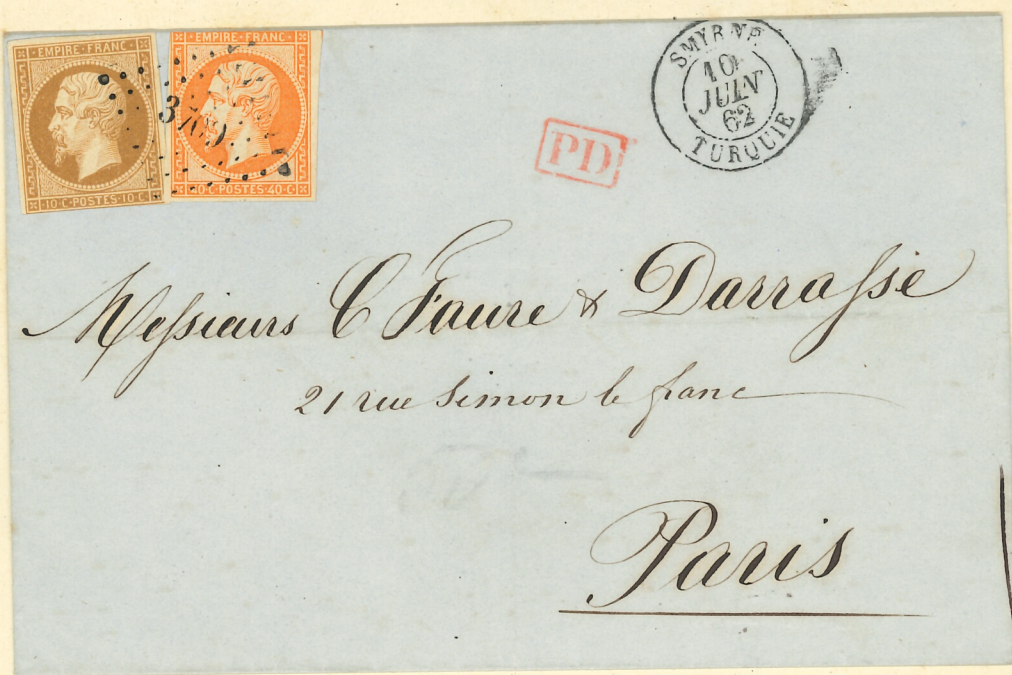 EMPIRE·FRANC·
10·C·POSTES·10·C·
EMPIRE·FRANC·
40·C·POSTES·40·C·
3709
SMYRNE
10
JUIN
62
TURQUIE
PD
Messieurs C Faure & Darrasse
21 rue Simon le franc
Paris